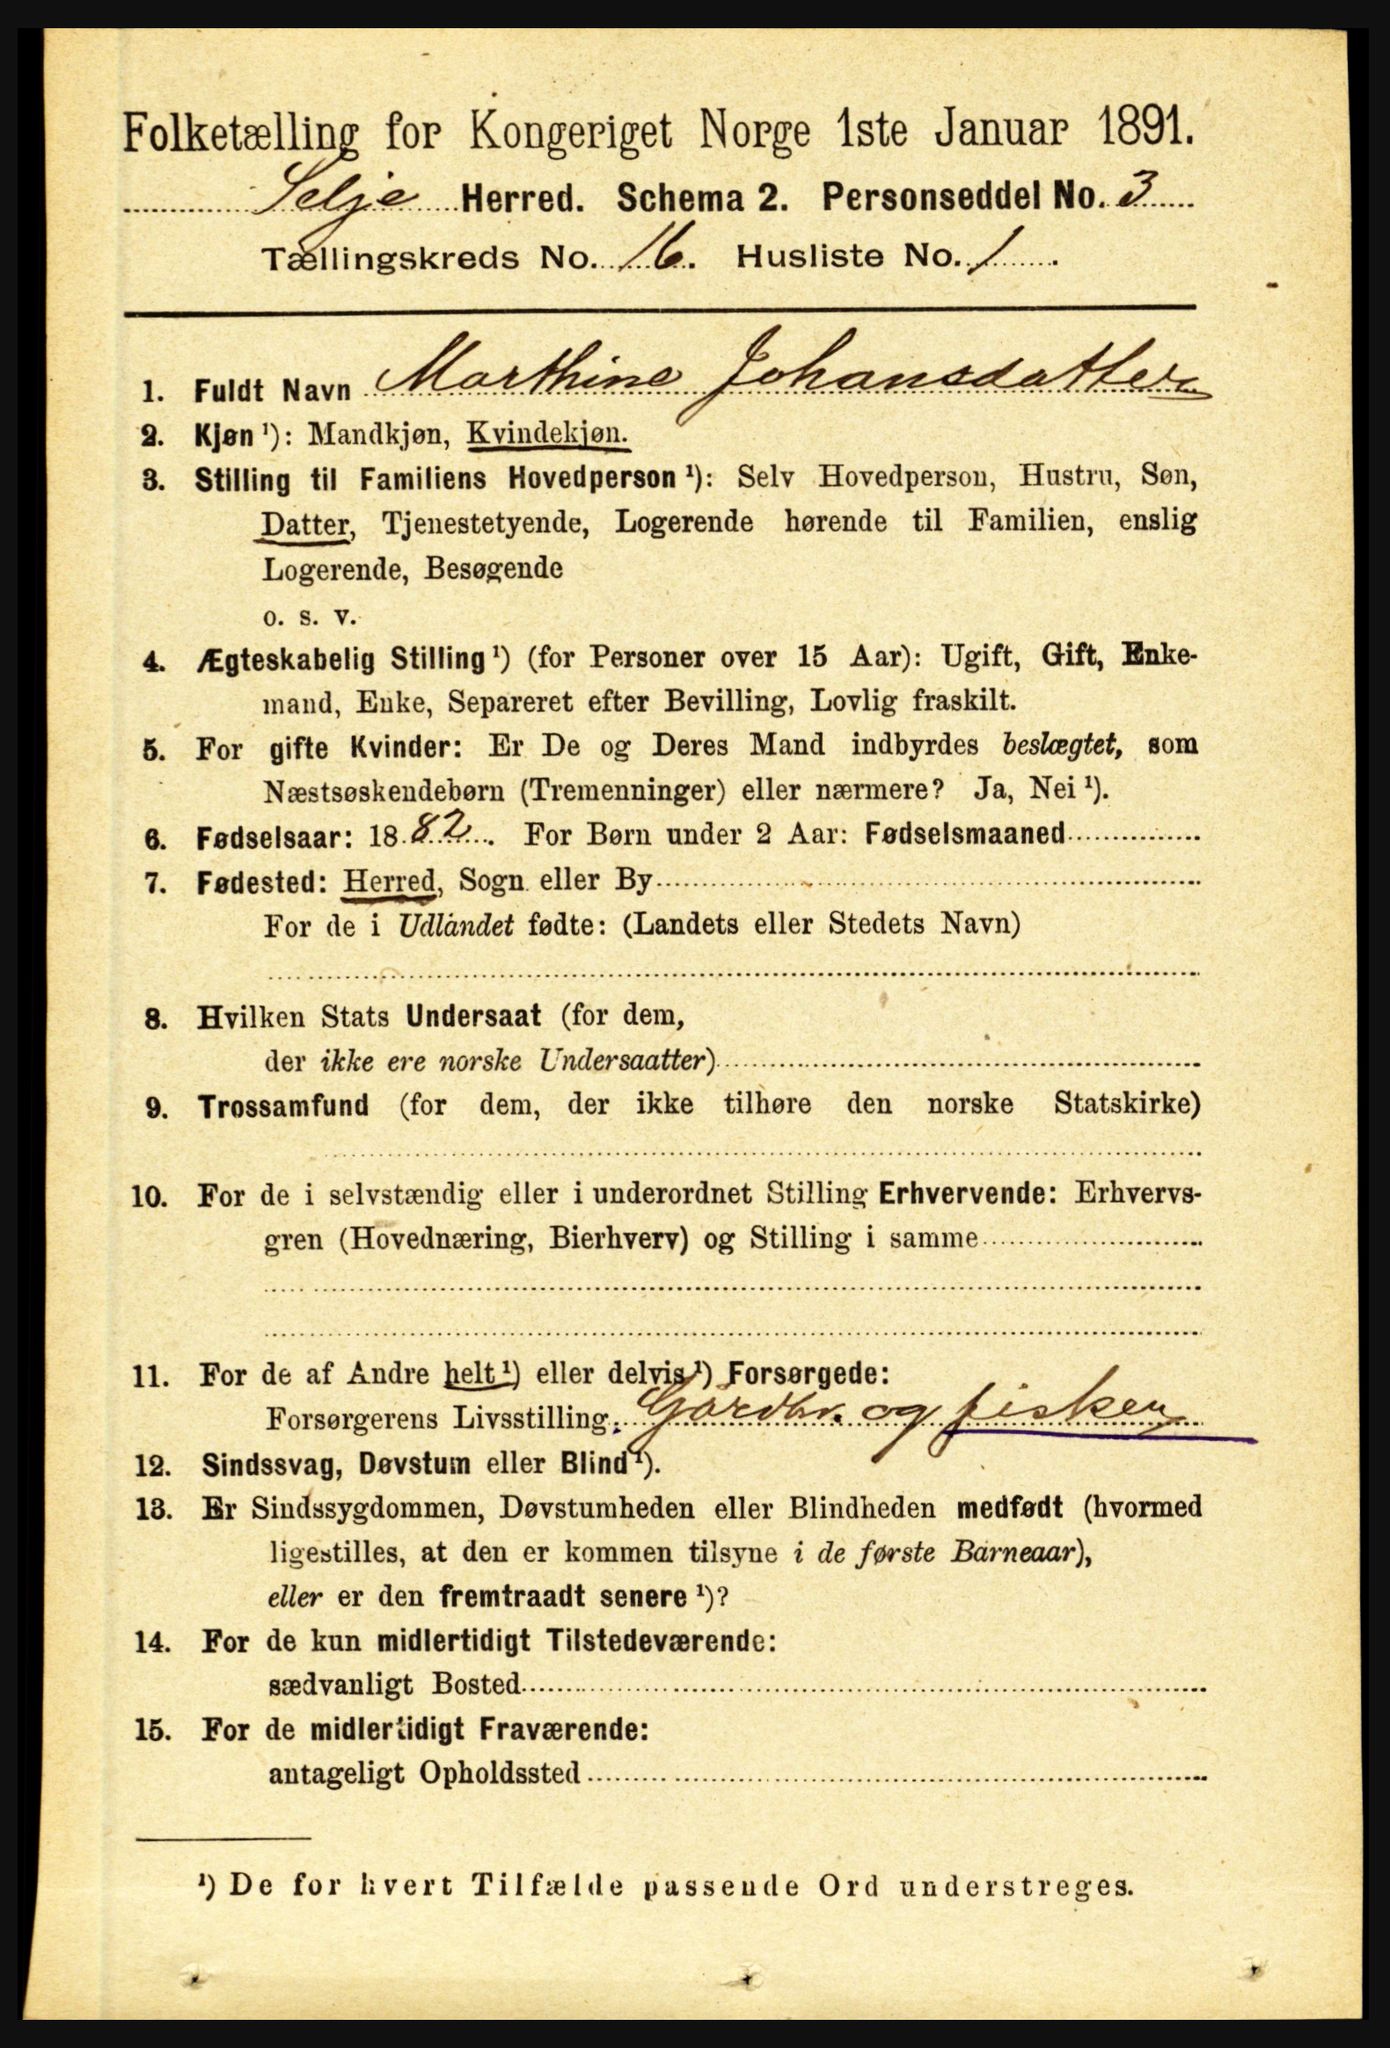 Folketælling for Kongeriget Norge 1ste Januar 1891.
Selje Herred. Schema 2. Personseddel No. 3
Tællingskreds No. 16. Husliste No. 1
1. Fuldt Navn Marthine Johansdatter
2. Kjøn ¹): Mandkjøn, Kvindekjøn.
3. Stilling til Familiens Hovedperson ¹): Selv Hovedperson, Hustru, Søn,
Datter, Tjenestetyende, Logerende hørende til Familien, enslig
Logerende, Besøgende
o. s. v.
4. Ægteskabelig Stilling ¹) (for Personer over 15 Aar): Ugift, Gift, Enke-
mand, Enke, Separeret efter Bevilling, Lovlig fraskilt.
5. For gifte Kvinder: Er De og Deres Mand indbyrdes beslægtet, som
Næstsøskendebørn (Tremenninger) eller nærmere? Ja, Nei ¹).
6. Fødselsaar: 1882. For Børn under 2 Aar: Fødselsmaaned
7. Fødested: Herred, Sogn eller By
For de i Udlandet fødte: (Landets eller Stedets Navn)
8. Hvilken Stats Undersaat (for dem,
der ikke ere norske Undersaatter)
9. Trossamfund (for dem, der ikke tilhøre den norske Statskirke)
10. For de i selvstændig eller i underordnet Stilling Erhvervende: Erhvervs-
gren (Hovednæring, Bierhverv) og Stilling i samme
11. For de af Andre helt ¹) eller delvis ¹) Forsørgede:
Forsørgerens Livsstilling: Gårdbr. og fisker
12. Sindssvag, Døvstum eller Blind ¹).
13. Er Sindssygdommen, Døvstumheden eller Blindheden medfødt (hvormed
ligestilles, at den er kommen tilsyne i de første Barneaar),
eller er den fremtraadt senere ¹)?
14. For de kun midlertidigt Tilstedeværende:
sædvanligt Bosted
15. For de midlertidigt Fraværende:
antageligt Opholdssted
¹) De for hvert Tilfælde passende Ord understreges.